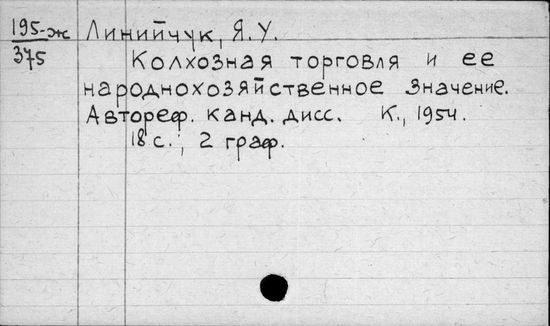 195-ж Линийчук, Я.У.
375
Колхозная торговля и ее
народнохозяйственное значение.
Автореф. канд. дисс. К., 1954.
18 с., 2 граф.